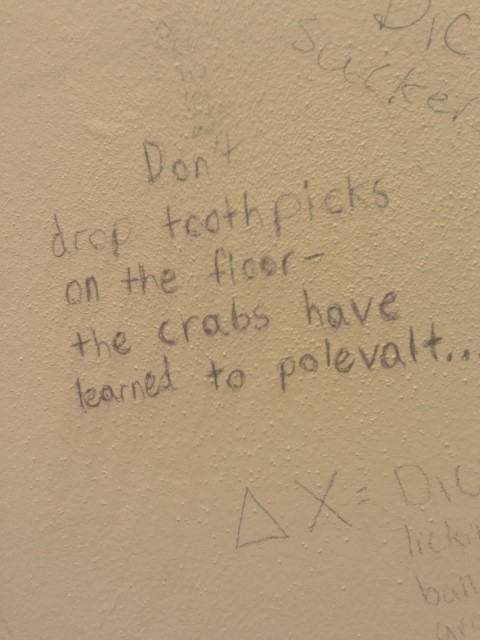 sucker
Don't
drop toothpicks
on the floor-
the crabs have
learned to polevalt...
ΔX=